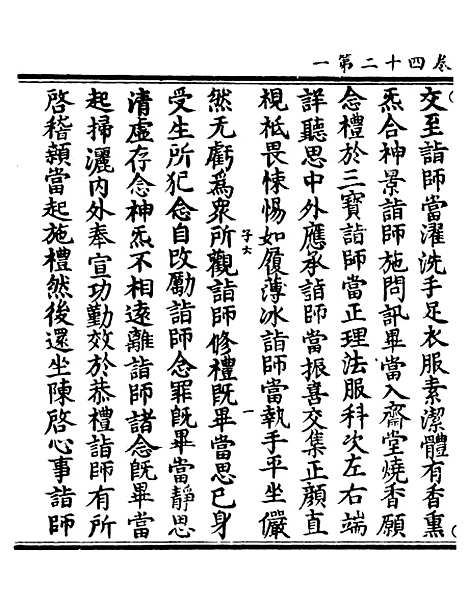 卷四十二第一
交至詣師當濯洗手足衣服素潔體有香熏
炁合神景詣師施問訊畢當入齋堂燒香願
念禮於三寶詣師當正理法服科次左右端
詳聽思中外應承詣師當振喜交集正顏直
視祗畏悚惕如履薄冰詣師當執手平坐儼
子六　一
然无虧爲衆所觀詣師修禮旣畢當思已身
受生所犯念自改勵詣師念罪旣畢當靜思
清虛存念神炁不相遠離詣師諸念旣畢當
起掃灑內外奉宣功勤效於恭禮詣師有所
啓稽顙當起施禮然後還坐陳啓心事詣師